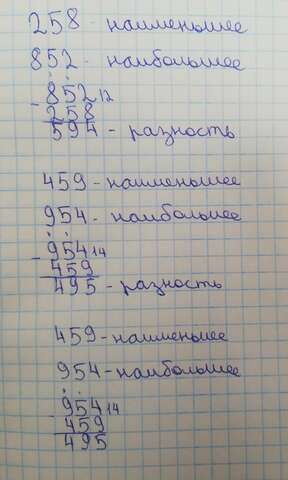 258 - наименьшее
852 - наибольшее
- 852 12
258
594 - разность
459 - наименьшее
954 - наибольшее
- 954 14
459
495 - разность
459 - наименьшее
954 - наибольшее
- 954 14
459
495